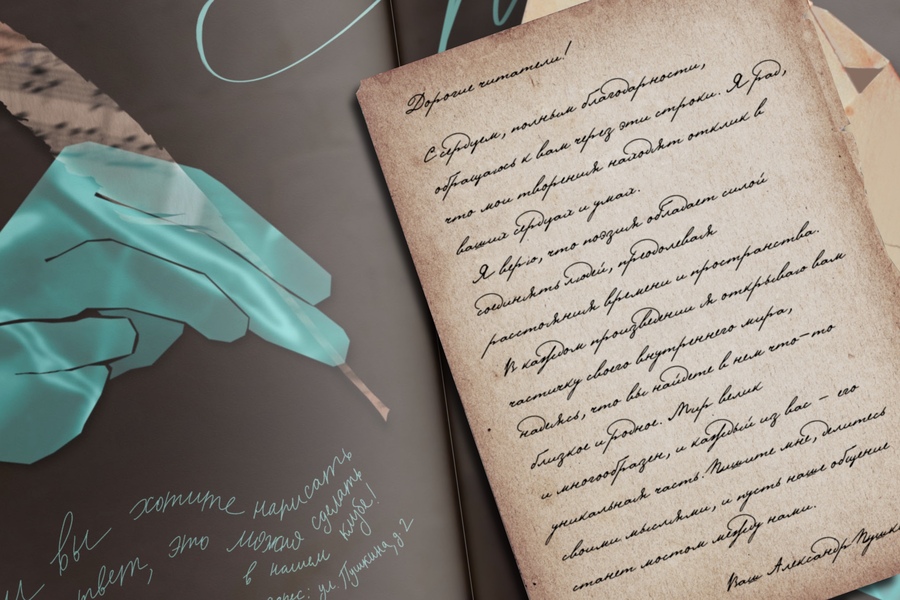 Дорогие читатели!
С сердцем, полным благодарности,
обращаюсь к вам через эти строки. Я рад,
что мои творения находят отклик в
ваших сердцах и умах.
Я верю, что поэзия обладает силой
соединять людей, преодолевая
расстояния времени и пространства.
В каждом произведении я открываю вам
частичку своего внутреннего мира,
надеясь, что вы найдете в нем что-то
близкое и родное. Мир велик
и многообразен, и каждый из вас – его
уникальная часть. Пишите мне, делитесь
своими мыслями, и пусть наше общение
станет мостом между нами.
Ваш Александр Пушки
и вы хотите написать
твет, это можно сделать
в нашем клубе!
рес: ул. Пушкина, д. 2